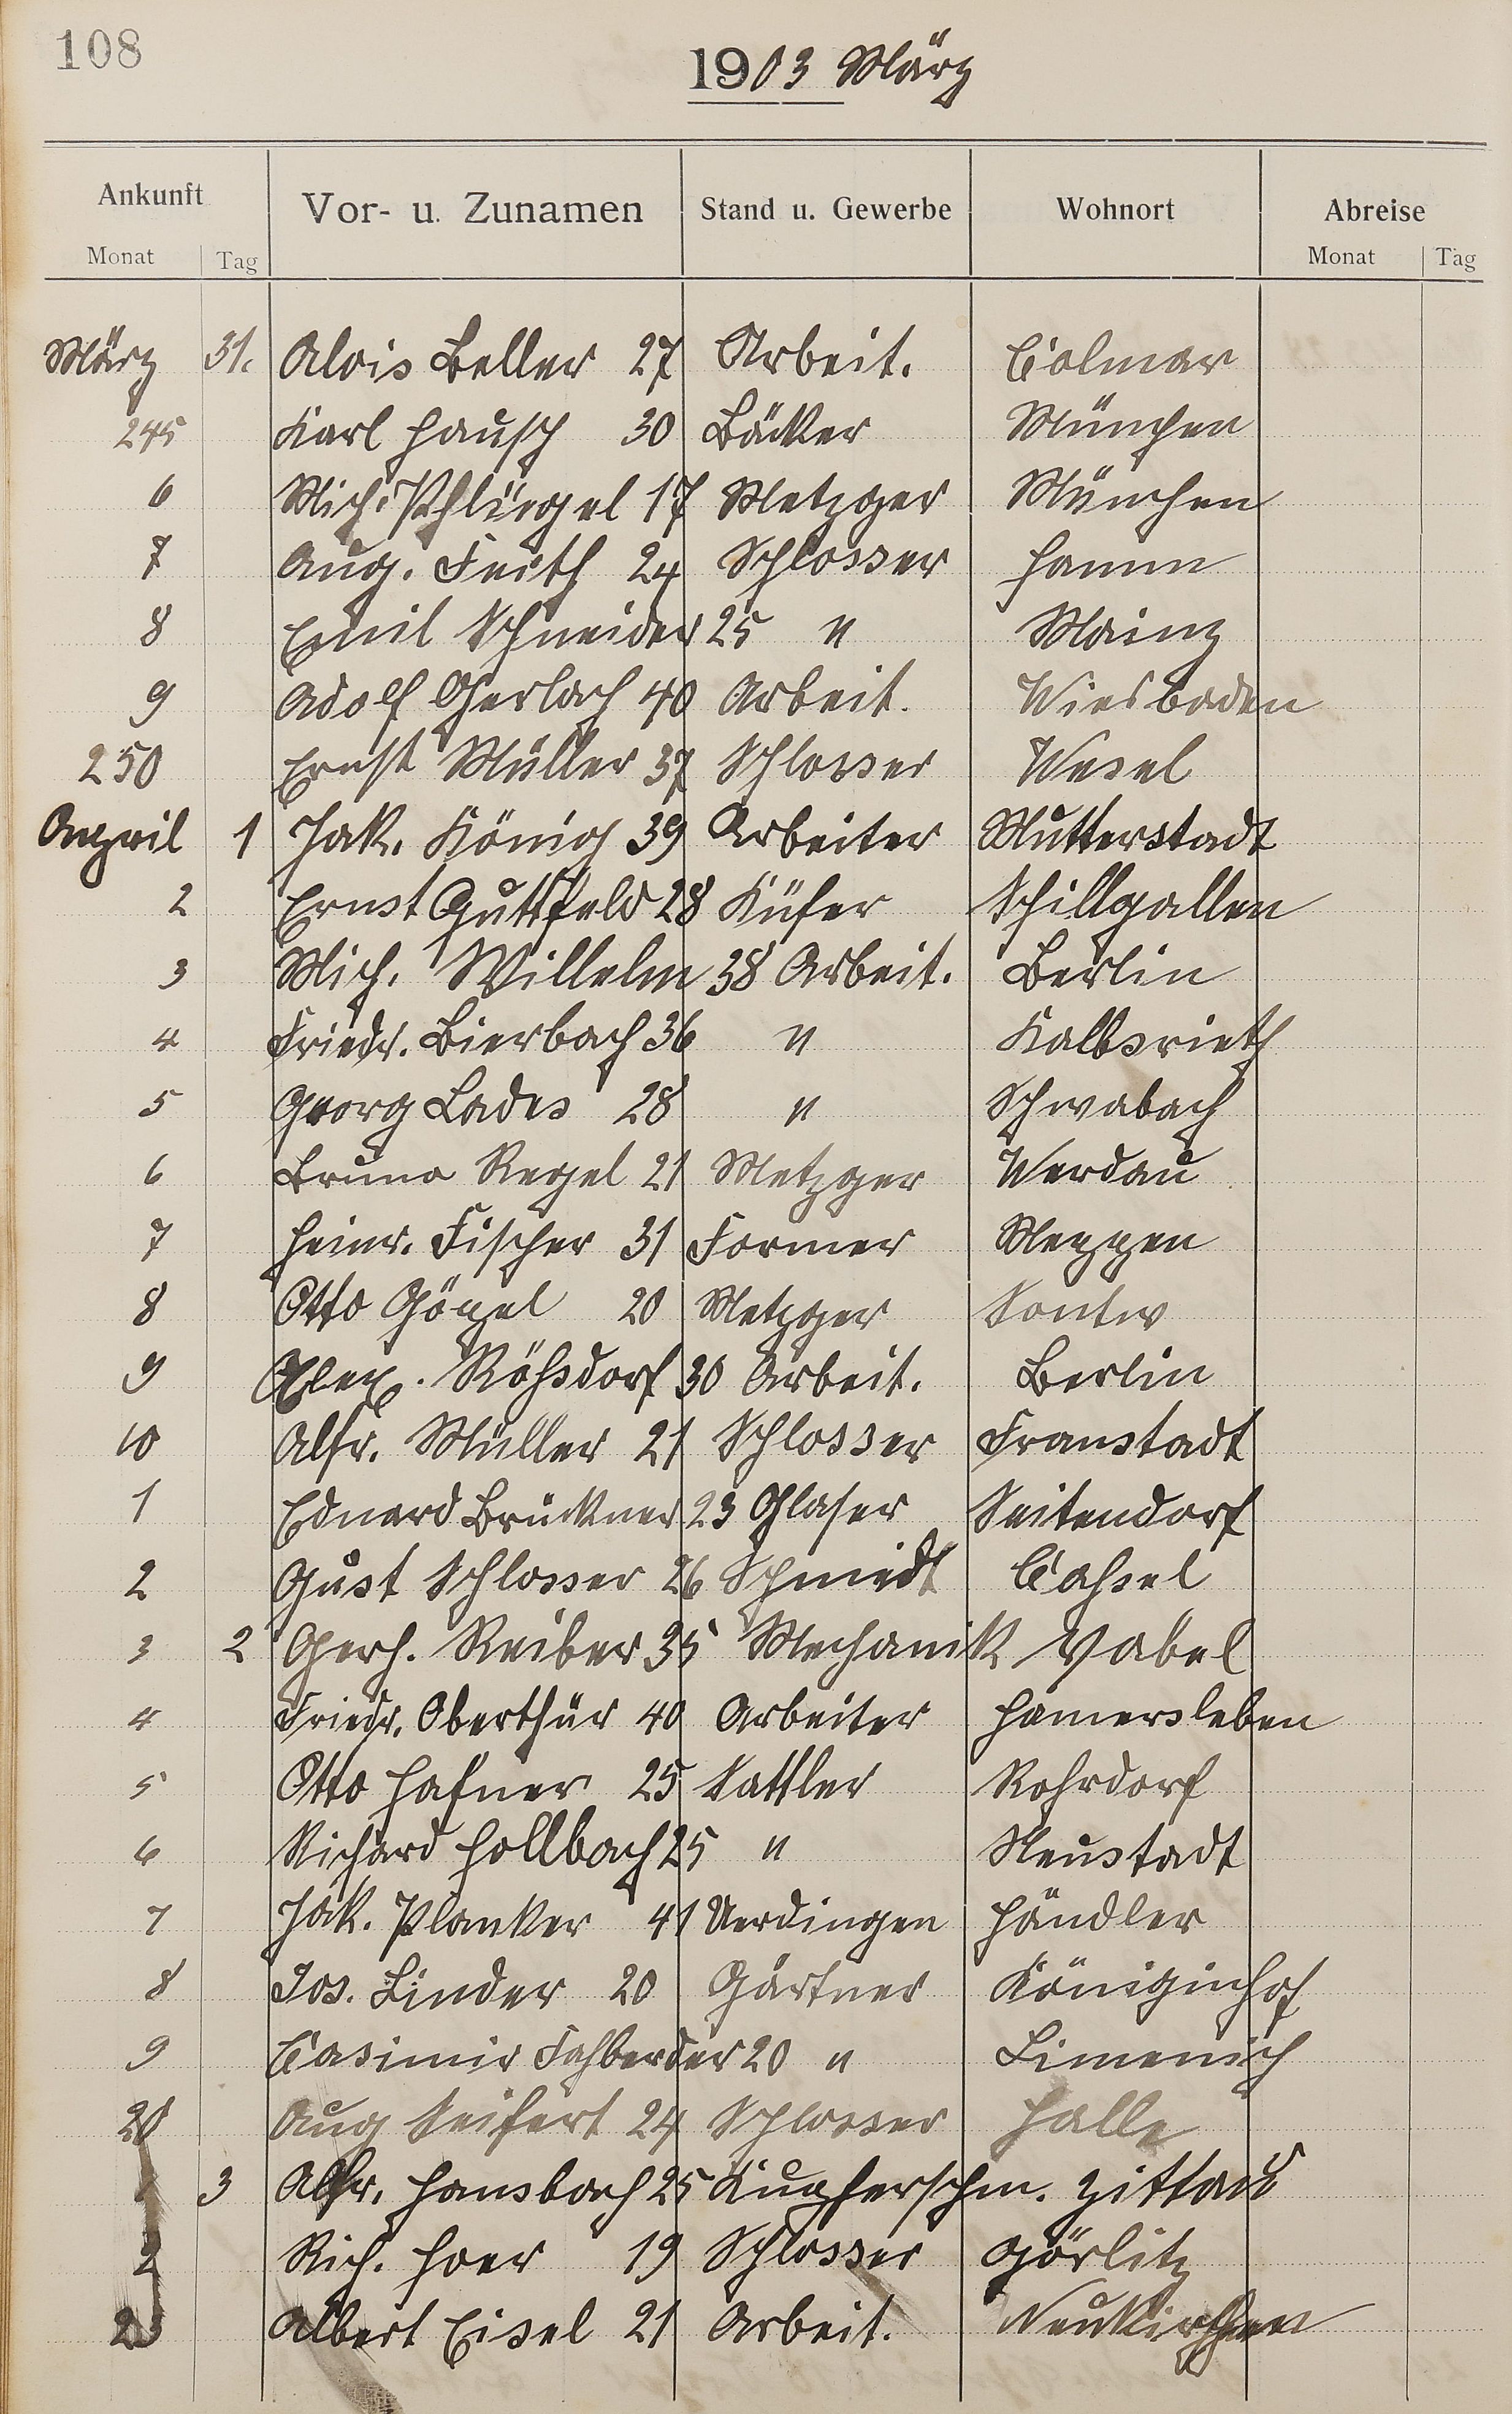 108
1903 März
Ankunft Vor- u. Zunamen Stand u. Gewerbe Wohnort Abreise
Monat Tag Monat Tag
März 31. Alois Beller 27 Arbeit. Colmar
245 Karl Hausch 30 Bäcker München
6 Mich. Pflügel 17 Metzger München
7 Aug. Feith 24 Schlosser Hamm
8 Emil Schneider 25 " Mainz
9 Adolf Gerlach 40 Arbeit. Wiesbaden
250 Ernst Müller 37 Schlosser Wesel
April 1 Jak. König 39 Arbeiter Mutterstadt
2 Ernst Guttfeld 28 Küfer Schillgallen
3 Mich. Willelm 38 Arbeit. Berlin
4 Friedr. Bierbach 36 " Kalbsrieth
5 Georg Lades 28 " Schwabach
6 Bruno Regel 21 Metzger Werdau
7 Heinr. Fischer 31 Former Meppen
8 Otto Göpel 20 Metzger Sontra
9 Alex. Röhsdorf 30 Arbeit. Berlin
10 Alfr. Müller 21 Schlosser Fraustadt
1 Eduard Brückner 23 Glaser Seitendorf
2 Gust Schlosser 26 Schmiedt Cassel
3 2 Gerh. Reiber 35 Mechanik Vabel
4 Friedr. Oberthür 40 Arbeiter Hamersleben
5 Otto Hafner 25 Sattler Rohrdorf
6 Richard Hollbach 25 " Neustadt
7 Jak. Planker 41 Uerdingen Händler
8 Jos. Linder 20 Gärtner Königinhof
9 Casimir Fahberder 20 " Limenich
20 Aug Seifert 24 Schlosser Halle
1 3 Alfr. Hansbach 25 Kupferschm. Zittau
2 Rich. Hoer 19 Schlosser Görlitz
23 Albert Eisel 21 Arbeit. Neukirchen